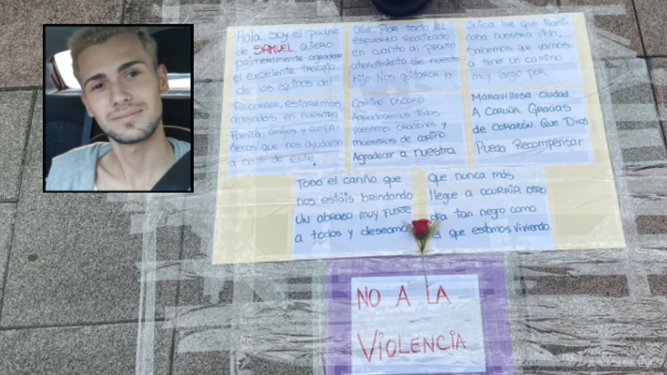 Hola, soy el padre
de SAMUEL quiero
primeramente agradecer
el excelente trabajo
de los equipos del
recorrer, estaremos
apoyados en nuestra
Familia, amigos y compa
ñeros que nos ayudaran
a salir de este
061 por todo el
esfuerzo realizado
en cuanto al pronto
atendimiento de nuestro
hijo. Nos quitaron la
Camino oscuro.
Agradecemos todas
vuestras oraciones y
muestras de cariño
Agradecer a nuestra
única luz que
nuestra vida,
sabemos que vamos
a tener un camino
muy largo por
Maravillosa ciudad
A Coruña. Gracias
de corazón. Que Dios
Pueda Recompensar
Todo el cariño que
nos estáis brindando
UN abrazo muy fuerte
a todos y deseamos
que nunca más
llegue a ocurrir otro
día tan negro como
el que estamos viviendo.
NO A LA
VIOLENCIA